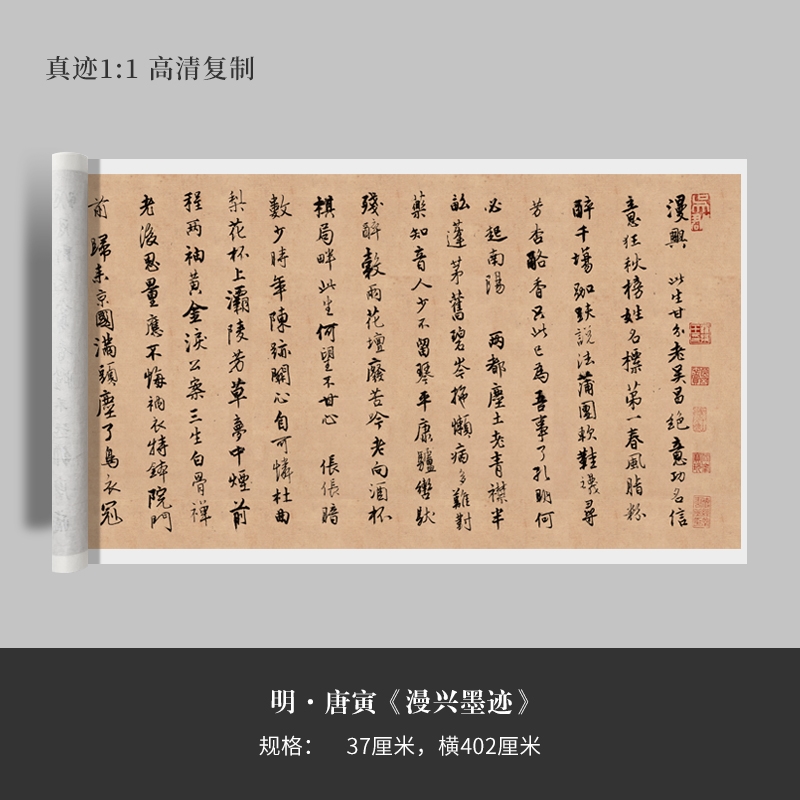 真迹1:1 高清复制
漫興 此生甘分老吳昌絕意功名信
意狂秋榜姓名標第一春風脂粉
醉千場跏趺說法蒲團軟鞋襪尋
芳杏酪香只此已為吾事了孔明何
必起南陽 兩都塵土老青襟半
畝蓬茅舊碧岑拖懶病多難對
藥知音人少不留琴平康驢背馱
殘醉穀雨花壇廢苦吟老向酒杯
棋局畔此生何望不甘心 倀倀暗
數少時年陳跡關心自可憐杜曲
梨花杯上灞陵芳草夢中煙前
程兩袖黃金淚公案三生白骨禪
老後思量應不悔衲衣持鉢院門
前 歸來京國滿頭塵了烏衣冠
明·唐寅《漫兴墨迹》
规格： 37厘米，横402厘米